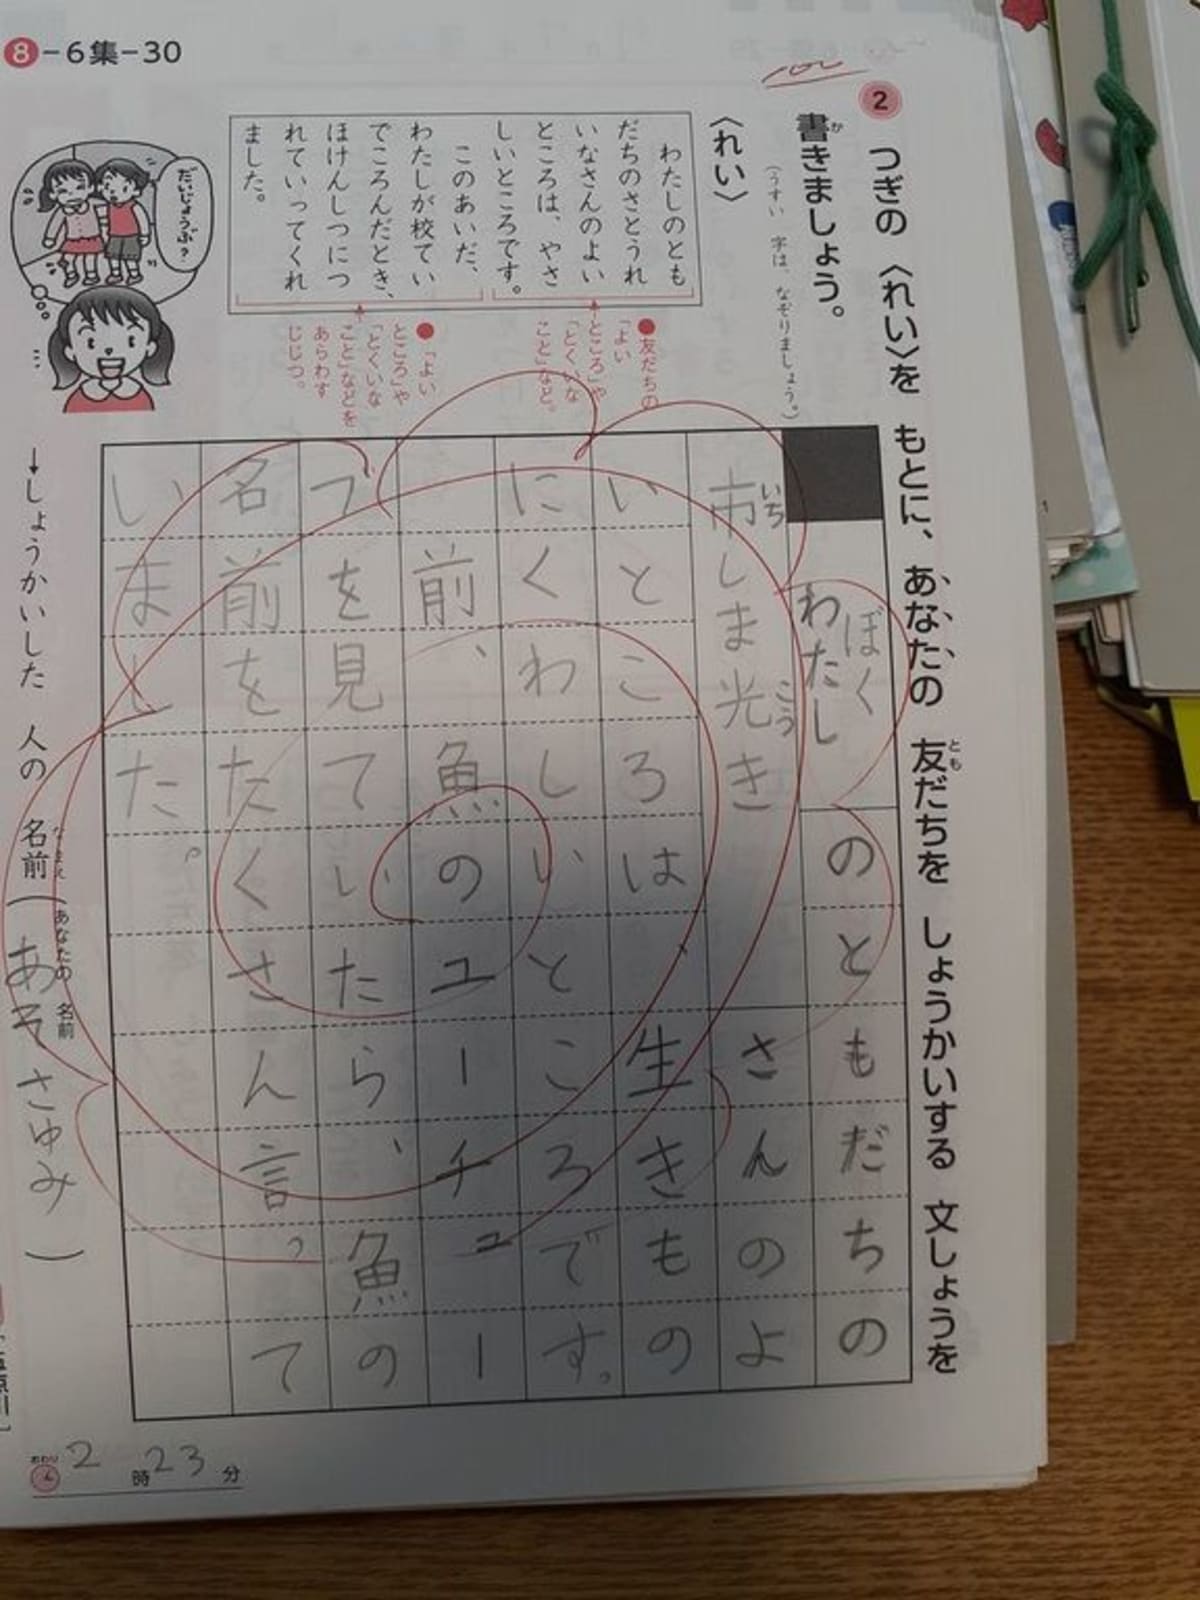 8-6集-30
2
つぎの〈れい〉を もとに、あなたの 友だちを しょうかいする 文しょうを
とも
書きましょう。
か
(うすい 字は、なぞりましょう。)
〈れい〉
わたしのとも
だちのさとうれ
いなさんのよい
ところは、やさ
しいところです。
このあいだ、
わたしが校てい
でころんだとき、
ほけんしつにつ
れていってくれ
ました。
●友だちの
「よい
ところ」や
「とくいな
こと」など。
●「よい
ところ」や
「とくいな
こと」などを
あらわす
じじつ。
だいじょうぶ?
ぼく
わたし
のともだちの
市しま光き
いち
こう
さんのよ
いところは、生きもの
にくわしいところです。
前、魚のユーチュー
ブを見ていたら、魚の
名前をたくさん言って
いました。
↓しょうかいした 人の 名前(
なまえ
あなたの 名前
あそ さゆみ
)
おわり
2時23分